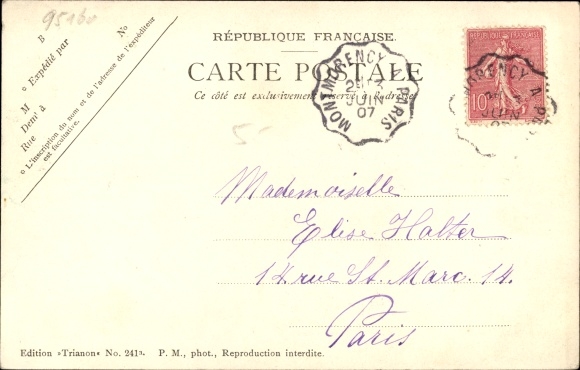 95160
RÉPUBLIQUE FRANÇAISE.
CARTE POSTALE
Ce côté est exclusivement réservé à l'adresse.
B No
* Expédié par
M
Demt à
Rue
* L'inscription du nom et de l'adresse de l'expéditeur
est facultative.
MONTMORENCY A PARIS
JUIN
07
REPUBLIQUE FRANÇAISE
10
MORENCY A PA
JUIN
07
5-
Mademoiselle
Elise Halter
14 rue St. Marc. 14.
Paris
Edition »Trianon« No. 241a. P. M., phot., Reproduction interdite.